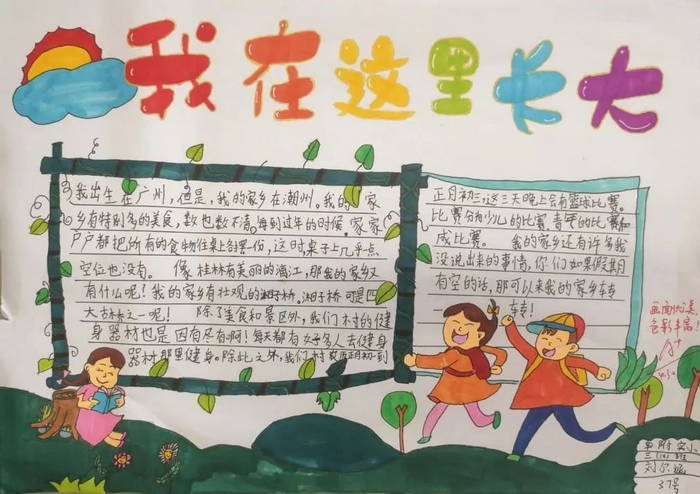 我在这里长大
我出生在广州，但是，我的家乡在潮州。我的家
乡有特别多的美食，数也数不清。每到过年的时候，家家
户户都把所有的食物往桌上各摆一份，这时，桌子上几乎一点
空位也没有。 像桂林有美丽的漓江，那我的家乡又
有什么呢？我的家乡有壮观的湘子桥，湘子桥可是四
大古桥之一呢！ 除了美食和景区外，我们村的健
身器材也是因有尽有啊！每天都有好多人去健身
器材那里健身。除此之外，我们村每次正月初一到
正月初三，这三天晚上会有篮球比赛。
比赛分为少儿的比赛、青年的比赛和
成比赛。 我的家乡还有许多我
没说出来的事情，你们如果假期
有空的话，那可以来我的家乡转
转！
画面优美，
色彩丰富！
附实小
三(10)班
刘尔涵
37号